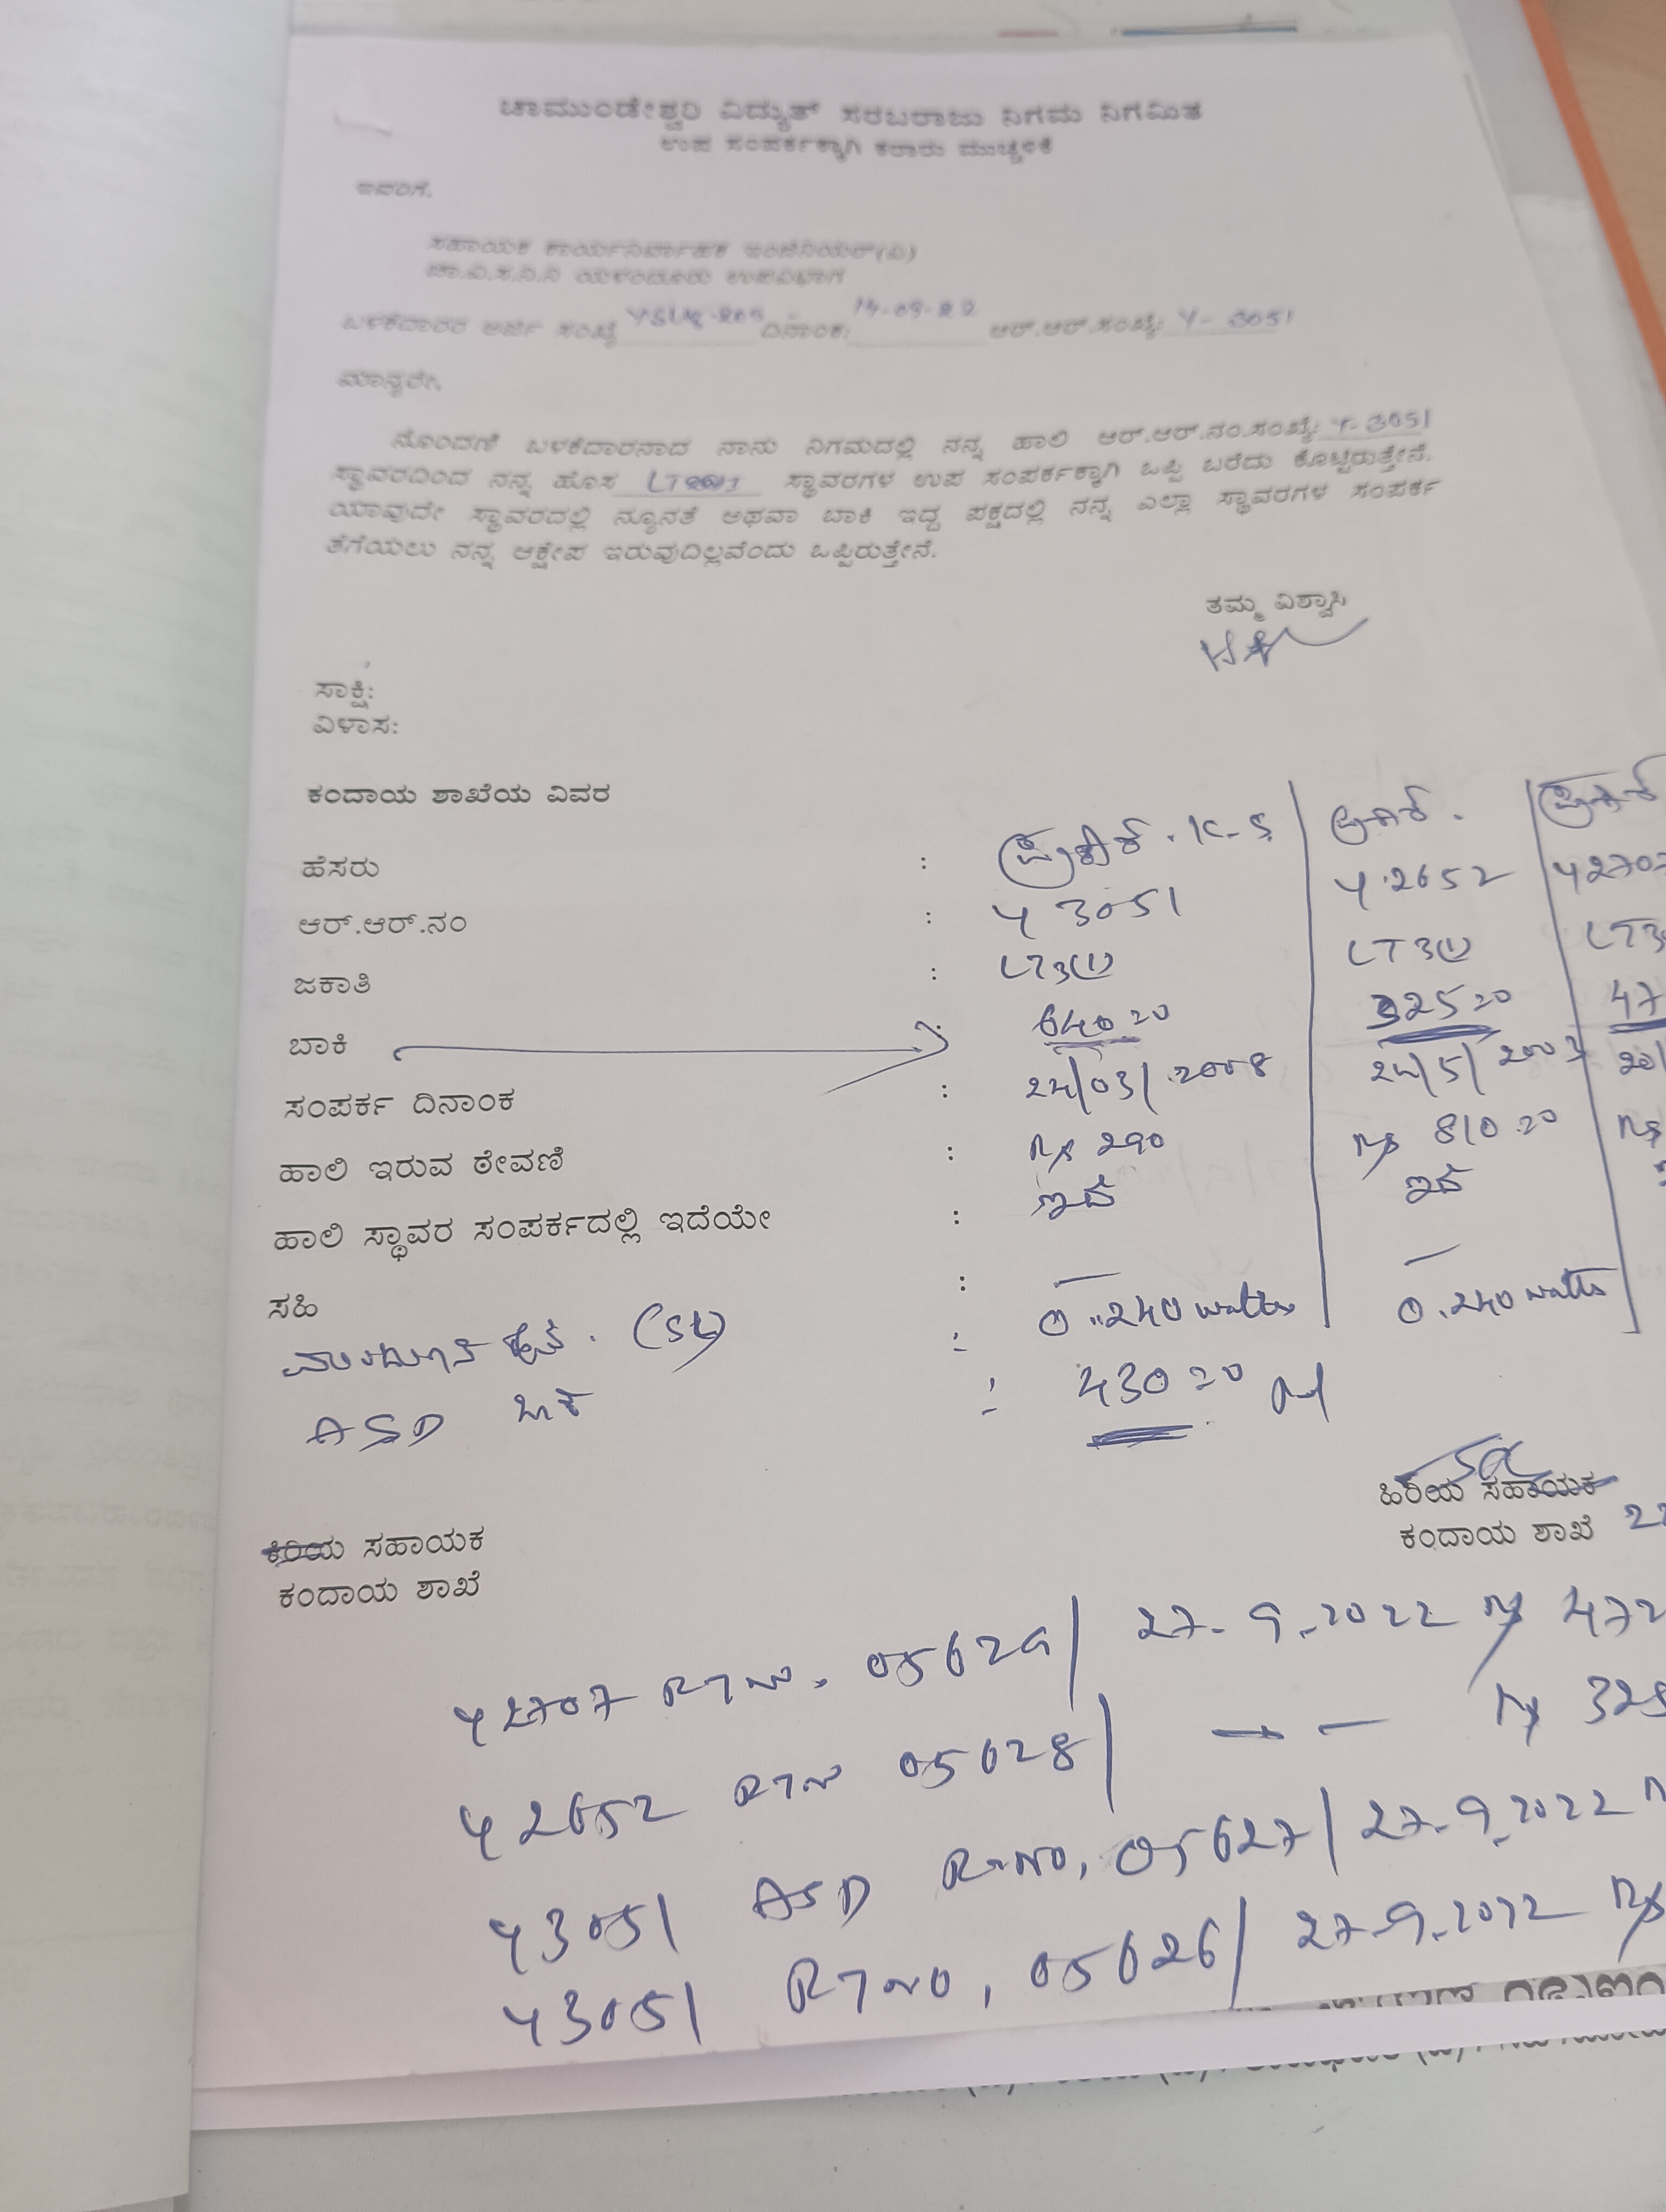 ಚಾಮುಂಡೇಶ್ವರಿ ವಿದ್ಯುತ್ ಸರಬರಾಜು ನಿಗಮ ನಿಗಮಿತ
ಉಪ ಸಂಪರ್ಕಕ್ಕಾಗಿ ಕರಾರು ಮುಚ್ಚಳಿಕೆ
ಇವರಿಗೆ,
ಸಹಾಯಕ ಕಾರ್ಯನಿರ್ವಾಹಕ ಇಂಜಿನಿಯರ್(ವಿ)
ಚಾ.ವಿ.ಸ.ನಿ.ನಿ ಯಳಂದೂರು ಉಪವಿಭಾಗ
ಬಳಕೆದಾರರ ಅರ್ಜಿ ಸಂಖ್ಯೆ ದಿನಾಂಕ: 14-09-22 ಆರ್.ಆರ್.ಸಂಖ್ಯೆ: Y- 3051
ಮಾನ್ಯರೇ,
ನೊಂದಣಿ ಬಳಕೆದಾರನಾದ ನಾನು ನಿಗಮದಲ್ಲಿ ನನ್ನ ಹಾಲಿ ಆರ್.ಆರ್.ನಂ.ಸಂಖ್ಯೆ: Y-3051
ಸ್ಥಾವರದಿಂದ ನನ್ನ ಹೊಸ ಸ್ಥಾವರಗಳ ಉಪ ಸಂಪರ್ಕಕ್ಕಾಗಿ ಒಪ್ಪಿ ಬರೆದು ಕೊಟ್ಟಿರುತ್ತೇನೆ.
ಯಾವುದೇ ಸ್ಥಾವರದಲ್ಲಿ ನ್ಯೂನತೆ ಅಥವಾ ಬಾಕಿ ಇದ್ದ ಪಕ್ಷದಲ್ಲಿ ನನ್ನ ಎಲ್ಲಾ ಸ್ಥಾವರಗಳ ಸಂಪರ್ಕ
ತೆಗೆಯಲು ನನ್ನ ಆಕ್ಷೇಪ ಇರುವುದಿಲ್ಲವೆಂದು ಒಪ್ಪಿರುತ್ತೇನೆ.
ತಮ್ಮ ವಿಶ್ವಾಸಿ
ಸಾಕ್ಷಿ:
ವಿಳಾಸ:
ಕಂದಾಯ ಶಾಖೆಯ ವಿವರ
ಹೆಸರು : ಪ್ರಕಾಶ್ . K-S ಪ್ರಕಾಶ್ . ಪ್ರಕಾಶ್
ಆರ್.ಆರ್.ನಂ : Y 3051 Y.2652 Y2707
ಜಕಾತಿ : LT3(1) LT3(1) LT3
ಬಾಕಿ : 640=20 325=20 47
ಸಂಪರ್ಕ ದಿನಾಂಕ : 24/03/2008 24/5/2007 20/
ಹಾಲಿ ಇರುವ ಠೇವಣಿ : Rs 290 Rs 810=20 Rs
ಹಾಲಿ ಸ್ಥಾವರ ಸಂಪರ್ಕದಲ್ಲಿ ಇದೆಯೇ : ಇದೆ ಇದೆ
ಸಹಿ : — —
(SL) : 0.240 watts 0.240 watts
ASD ಬಾಕಿ : 430=20
ಹಿರಿಯ ಸಹಾಯಕ
ಕಂದಾಯ ಶಾಖೆ
ಕಿರಿಯ ಸಹಾಯಕ
ಕಂದಾಯ ಶಾಖೆ
Y 2707 R7 no. 05629/ 27-9-2022 Rs 472
Y 2652 R7 no 05628/ — — Rs 325
Y 3051 ASD R7 no, 05627/ 27-9-2022
Y 3051 R7 no, 05626/ 27-9-2022 Rs